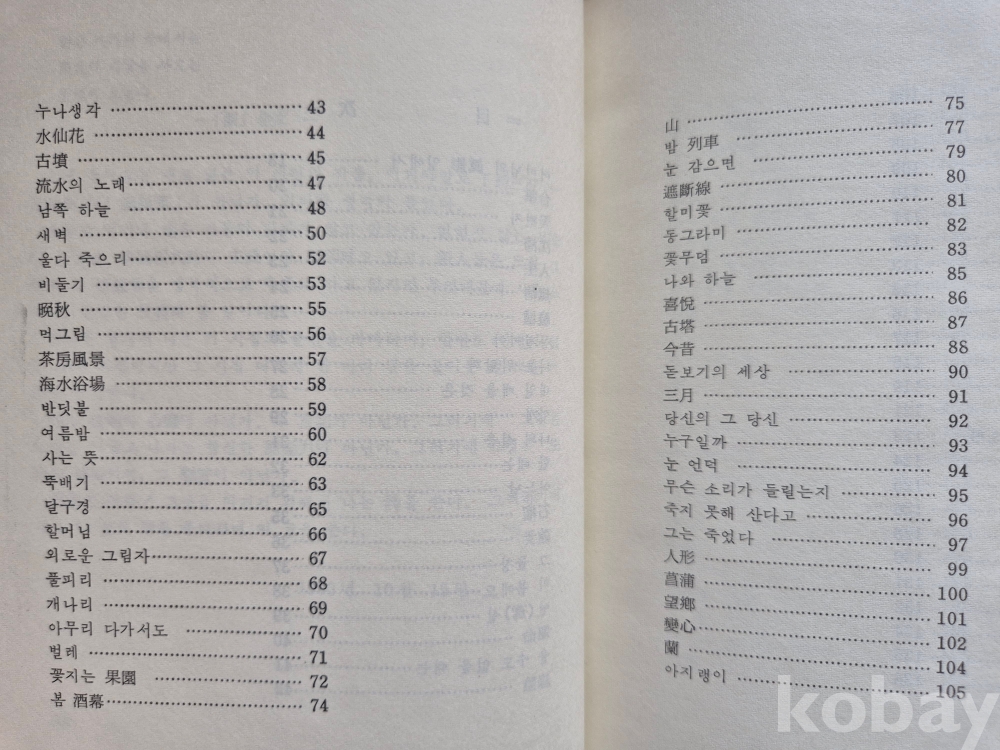 누나생각 …… 43
水仙花 …… 44
古墳 …… 45
流水의 노래 …… 47
남쪽 하늘 …… 48
새벽 …… 50
울다 죽으리 …… 52
비둘기 …… 53
晩秋 …… 55
먹그림 …… 56
茶房風景 …… 57
海水浴場 …… 58
반딧불 …… 59
여름밤 …… 60
사는 뜻 …… 62
뚝배기 …… 63
달구경 …… 65
할머님 …… 66
외로운 그림자 …… 67
풀피리 …… 68
개나리 …… 69
아무리 다가서도 …… 70
벌레 …… 71
꽃지는 果園 …… 72
봄 酒幕 …… 74
山 …… 75
밤 列車 …… 77
눈 감으면 …… 79
遮斷線 …… 80
할미꽃 …… 81
동그라미 …… 82
꽃무덤 …… 83
나와 하늘 …… 85
喜悅 …… 86
古塔 …… 87
今昔 …… 88
돋보기의 세상 …… 90
三月 …… 91
당신의 그 당신 …… 92
누구일까 …… 93
눈 언덕 …… 94
무슨 소리가 들릴는지 …… 95
죽지 못해 산다고 …… 96
그는 죽었다 …… 97
人形 …… 99
菖蒲 …… 100
望鄕 …… 101
變心 …… 102
蘭 …… 104
아지랭이 …… 105
kobay